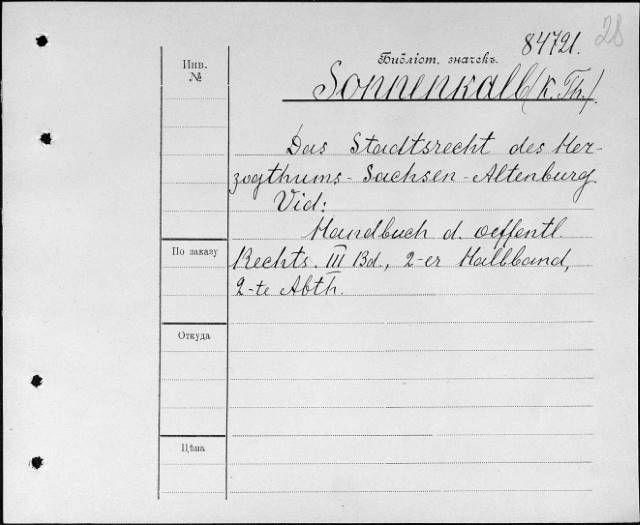 84721. 28
Библіот. значекъ.
Инв.
№
Sonnenkalb (K. Th.).
Das Stadtsrecht des Her-
zogthums-Sachsen-Altenburg
Vid:
Handbuch d. oeffentl.
По заказу
Rechts. III Bd., 2-er Halbband,
2-te Abth.
Откуда
Цѣна